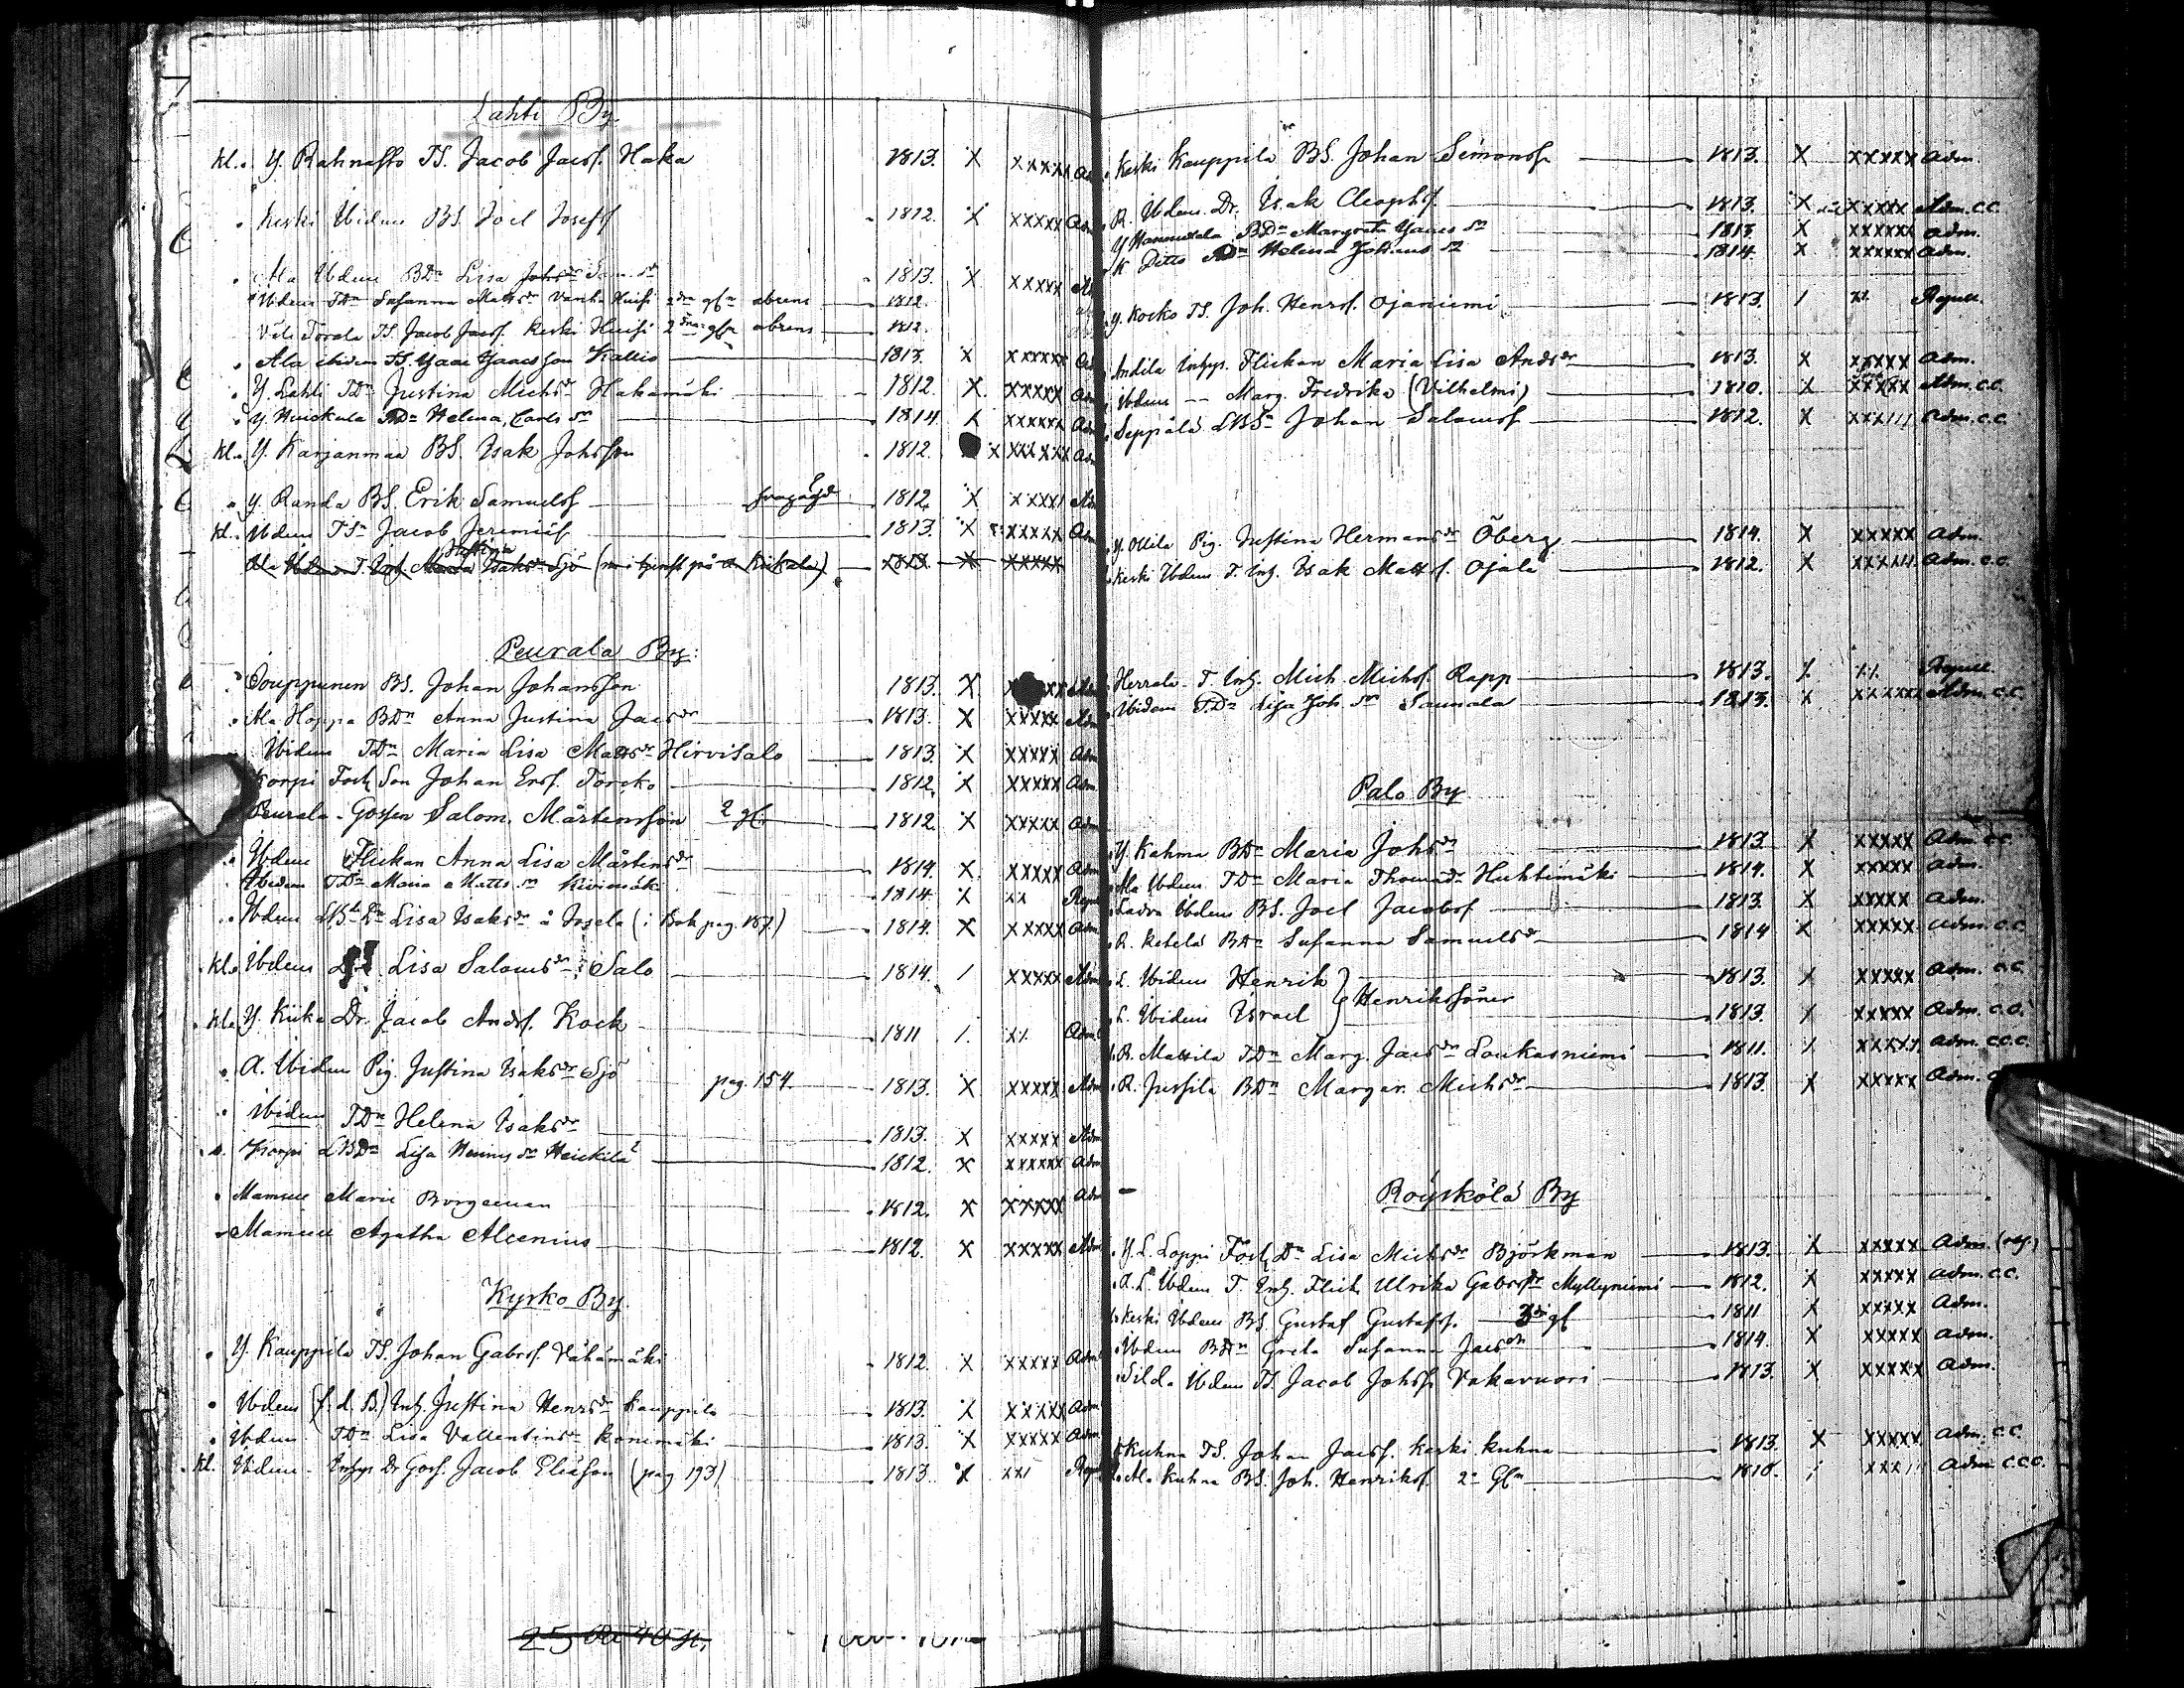 Lahti By.
kl. Y. Rahnasto TS. Jacob Jacsf. Haka 1813. X XXXXX Ad
Keski Ibidem BS. Joel Josefsf 1812. X XXXXX Adm
Ala Ibdem BDr Lisa Sam. dr 1813. X XXXXX Ad
Ibdem TDr Susanna Matts dr Vanha Huisi 2dra gf abrens 1812.
Väli Torala TS. Jacob Jacsf. Keski Huisi 2 gfn abrens 1812.
Ala ibidem TS. Isaac Isaacsson Kallio 1813. X XXXXX Ad
Y. Lahti TDr Justina Michs dr Hakamäki 1812 X. XXXXX Adm
Y. Huiskula TDr Helena, Carls dr 1814 X XXXXXX Adm
kl. Y. Karjanmaa BS. Isak Johsson 1812. X XXX XXX Adm
Y. Randa BS. Erik Samuelsf 1812. X XXXXI Adm
kl. Ibdem TSn Jacob Jeremiasf 1813. X XXXXX Adm
Ala Ibdem T. Inh. Justina Isaks dr Sjö (nu i tjenst på a. Kiikala) 1813. X XXXXX
Peurala By:
Pouppunen BS. Johan Johansson 1813. X XX Adm
Ala Hoppa BDr Anna Justina Jacs dr 1813. X XXXXX Adm
Ibidem TDr Maria Lisa Matts dr Hirvisalo 1813. X XXXXX Adm
Korpi Torp. Son Johan Ersf. Torcko 1812. X XXXXX Adm.
Peurala Gossen Salom. Mårtensson 2 gf. 1812. X XXXXX Adm
Ibdem Flickan Anna Lisa Mårtens dr 1814. X. XXXXX Adm
Ibidem TDr Maria Matts dr Kivimäki 1814 X XX Repu
Ibdem Lisa Isaks dr å Josela (i Bok pag. 187.) 1814. X XXXXX Adm
kl. Ibdem Lisa Saloms dr Salo 1814. / XXXXX Adm
kl. Y. Kiika Dr. Jacob Andsf. Kock 1811 /. X/. Adm.
A. Ibidem Pig. Justina Isaks dr Sjö pag. 154. 1813. X XXXXX Adm
Ibidem TDr Helena Isaks dr 1813. X XXXXX Adm
Korpi LBDr Lisa Hennings dr Heickilä 1812. X XXXXXX Adm
Mamsell Marie Borgeman 1812. X XXXXX Adm
Mamsell Agatha Alcenius 1812. X XXXXX Adm
Kyrko By.
Y. Kauppila TS. Johan Gabrsf. Vähämäki 1812. X XXXXX Adm
Ibdem (f. d. B.) Inh. Justina Henrs dr Kauppila 1813. X XXXXX Adm
Ibdem TDr Lisa Vallentins dr Konimäki 1813. X XXXXX Adm
kl. Ibdem Inhys Dr Goss. Jacob Eliasson (pag 193) 1813. X XXI Repu
Keski Kauppila BS. Johan Simonsf 1813. X XXXXX Adm.
R. Ibdem Dr. Isak Cleophsf 1813. X XXXXX Adm. c.c.
Y Hannuksela BDr Margreta Isaacs dr 1813 X XXXXXX Adm.
K Ditto Helena Johans dr 1814. X XXXXXX Adm.
Y. Kocko TS. Joh. Henrsf. Ojaniemi 1813. / X/. Repuls.
Andila Inhys. Flickan Maria Lisa Ands dr 1813. X XXXXX Adm.
Ibdem -- Marg. Fredrika (Vilhelmi) 1810. X XXXXX Adm. c.c.
Seppälä LBSn Johan Salomsf 1812. X XXX/// Adm. c.c.
Y. Ollila Pig. Justina Hermans dr Öberg 1814. X XXXXX Adm.
Keski Ibdem T. Inh. Isak Mattsf. Ojala 1812. X XXXXX Adm. c.c.
Herrala T. Inh. Mich. Michsf. Rapp 1813. X X/. Repuls.
Ibidem TDr Lisa Joh. dr Saunala 1813. X XXXXXX Adm. c.c.
Palo By
Y. Kahma BDr Maria Johs dr 1813. X XXXXX Adm. c.c.
Ala Ibdem TDr Maria Thomas dr Huhtimäki 1814. X XXXXX Adm.
Ladva Ibdem BS. Joel Jacobsf 1813. X XXXXX Adm.
R. Ketelä BDr Susanna Samuels dr 1814 X XXXXX Adm. c.c.
L. Ibidem Henrik } Henrikssöner 1813. X XXXXX Adm. c.c.
L. Ibidem Israel 1813. X XXXXX Adm. c.c.
R. Mattila TDr Marg. Jacs dr Loukasniemi 1811. X XXXXX Adm. c.c.c.
R. Jussila BDr Margar. Michs dr 1813. X XXXXX Adm. c
Röyskölä By
Y. L. Loppi Torp. Dr Lisa Michs dr Björkman 1813. X XXXXX Adm.
A. L. Ibdem T. Inh. Flick. Ulrika Gabrs dr Myllyniemi 1812. X XXXXX Adm. c.c.
Keski Ibdem BS. Gustaf Gustafsf. 3 gf 1811 X XXXXX Adm.
Ibdem BDr Greta Susanna Jacs dr 1814. X XXXXX Adm.
Silda Ibdem TS. Jacob Johsf. Vakavuori 1813. X XXXXX Adm.
Kuhna TS. Johan Jacsf. Keski Kuhna 1813. X XXXXX Adm. c.c.
Ala Kuhna BS. Joh. Henriksf. 2a Gfn 1810. / XXX// Adm c.c.c.